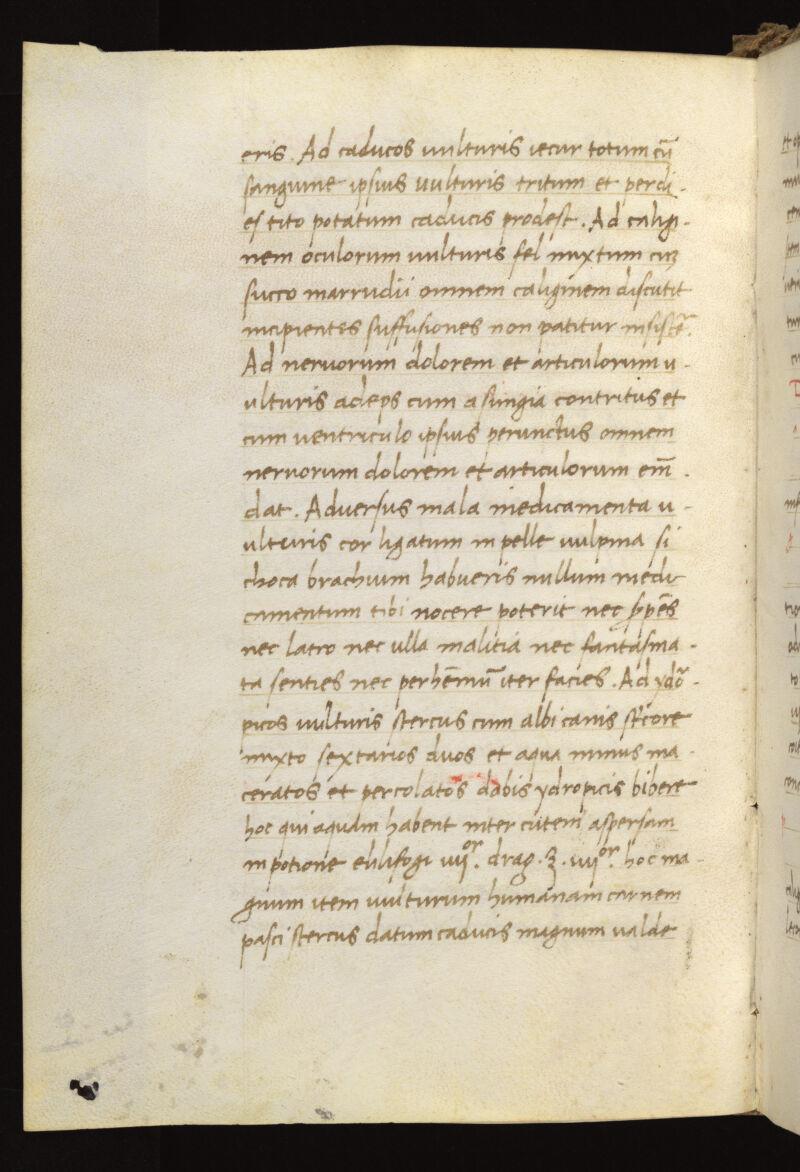 eris. Ad caducos uulturis iecur totum cũ
sanguine ipsius uulturis tritum et per di-
es tito potatum caducis prodest. Ad caligi-
nem oculorum uulturis fel mixtum cuz
succo marrudii omnem caliginem discutit
incipientes suffusiones non patitur insistẽ.
Ad neruorum dolorem et articulorum u-
ulturis adeps cum asungia contritus et
cum uentriculo ipsius perunctus omnem
neruorum dolorem et articulorum em̃-
dat. Aduersus mala medicamenta u-
ulturis cor ligatum in pelle uulpina si
choca brachium habueris nullum medi
camentum tibi nocere poterit nec s̃pẽs
nec latro nec ulla malitia nec fantasma-
ta senties nec per hẽmũ iter facies. Ad ydõ-
picos uulturis stercus cum albi canis st̃core
mixto sextarios duos et aqua minus ma-
ceratos et percolatos dabis ydropicis bibere
hoc qui aquam habent inter cutem aspersam
in potione elilifogi iiij.or drag. ʒ. iiij.or hoc ma-
gnum item uulturum humanam carnem
pasci stercus datum caducis magnum ualde